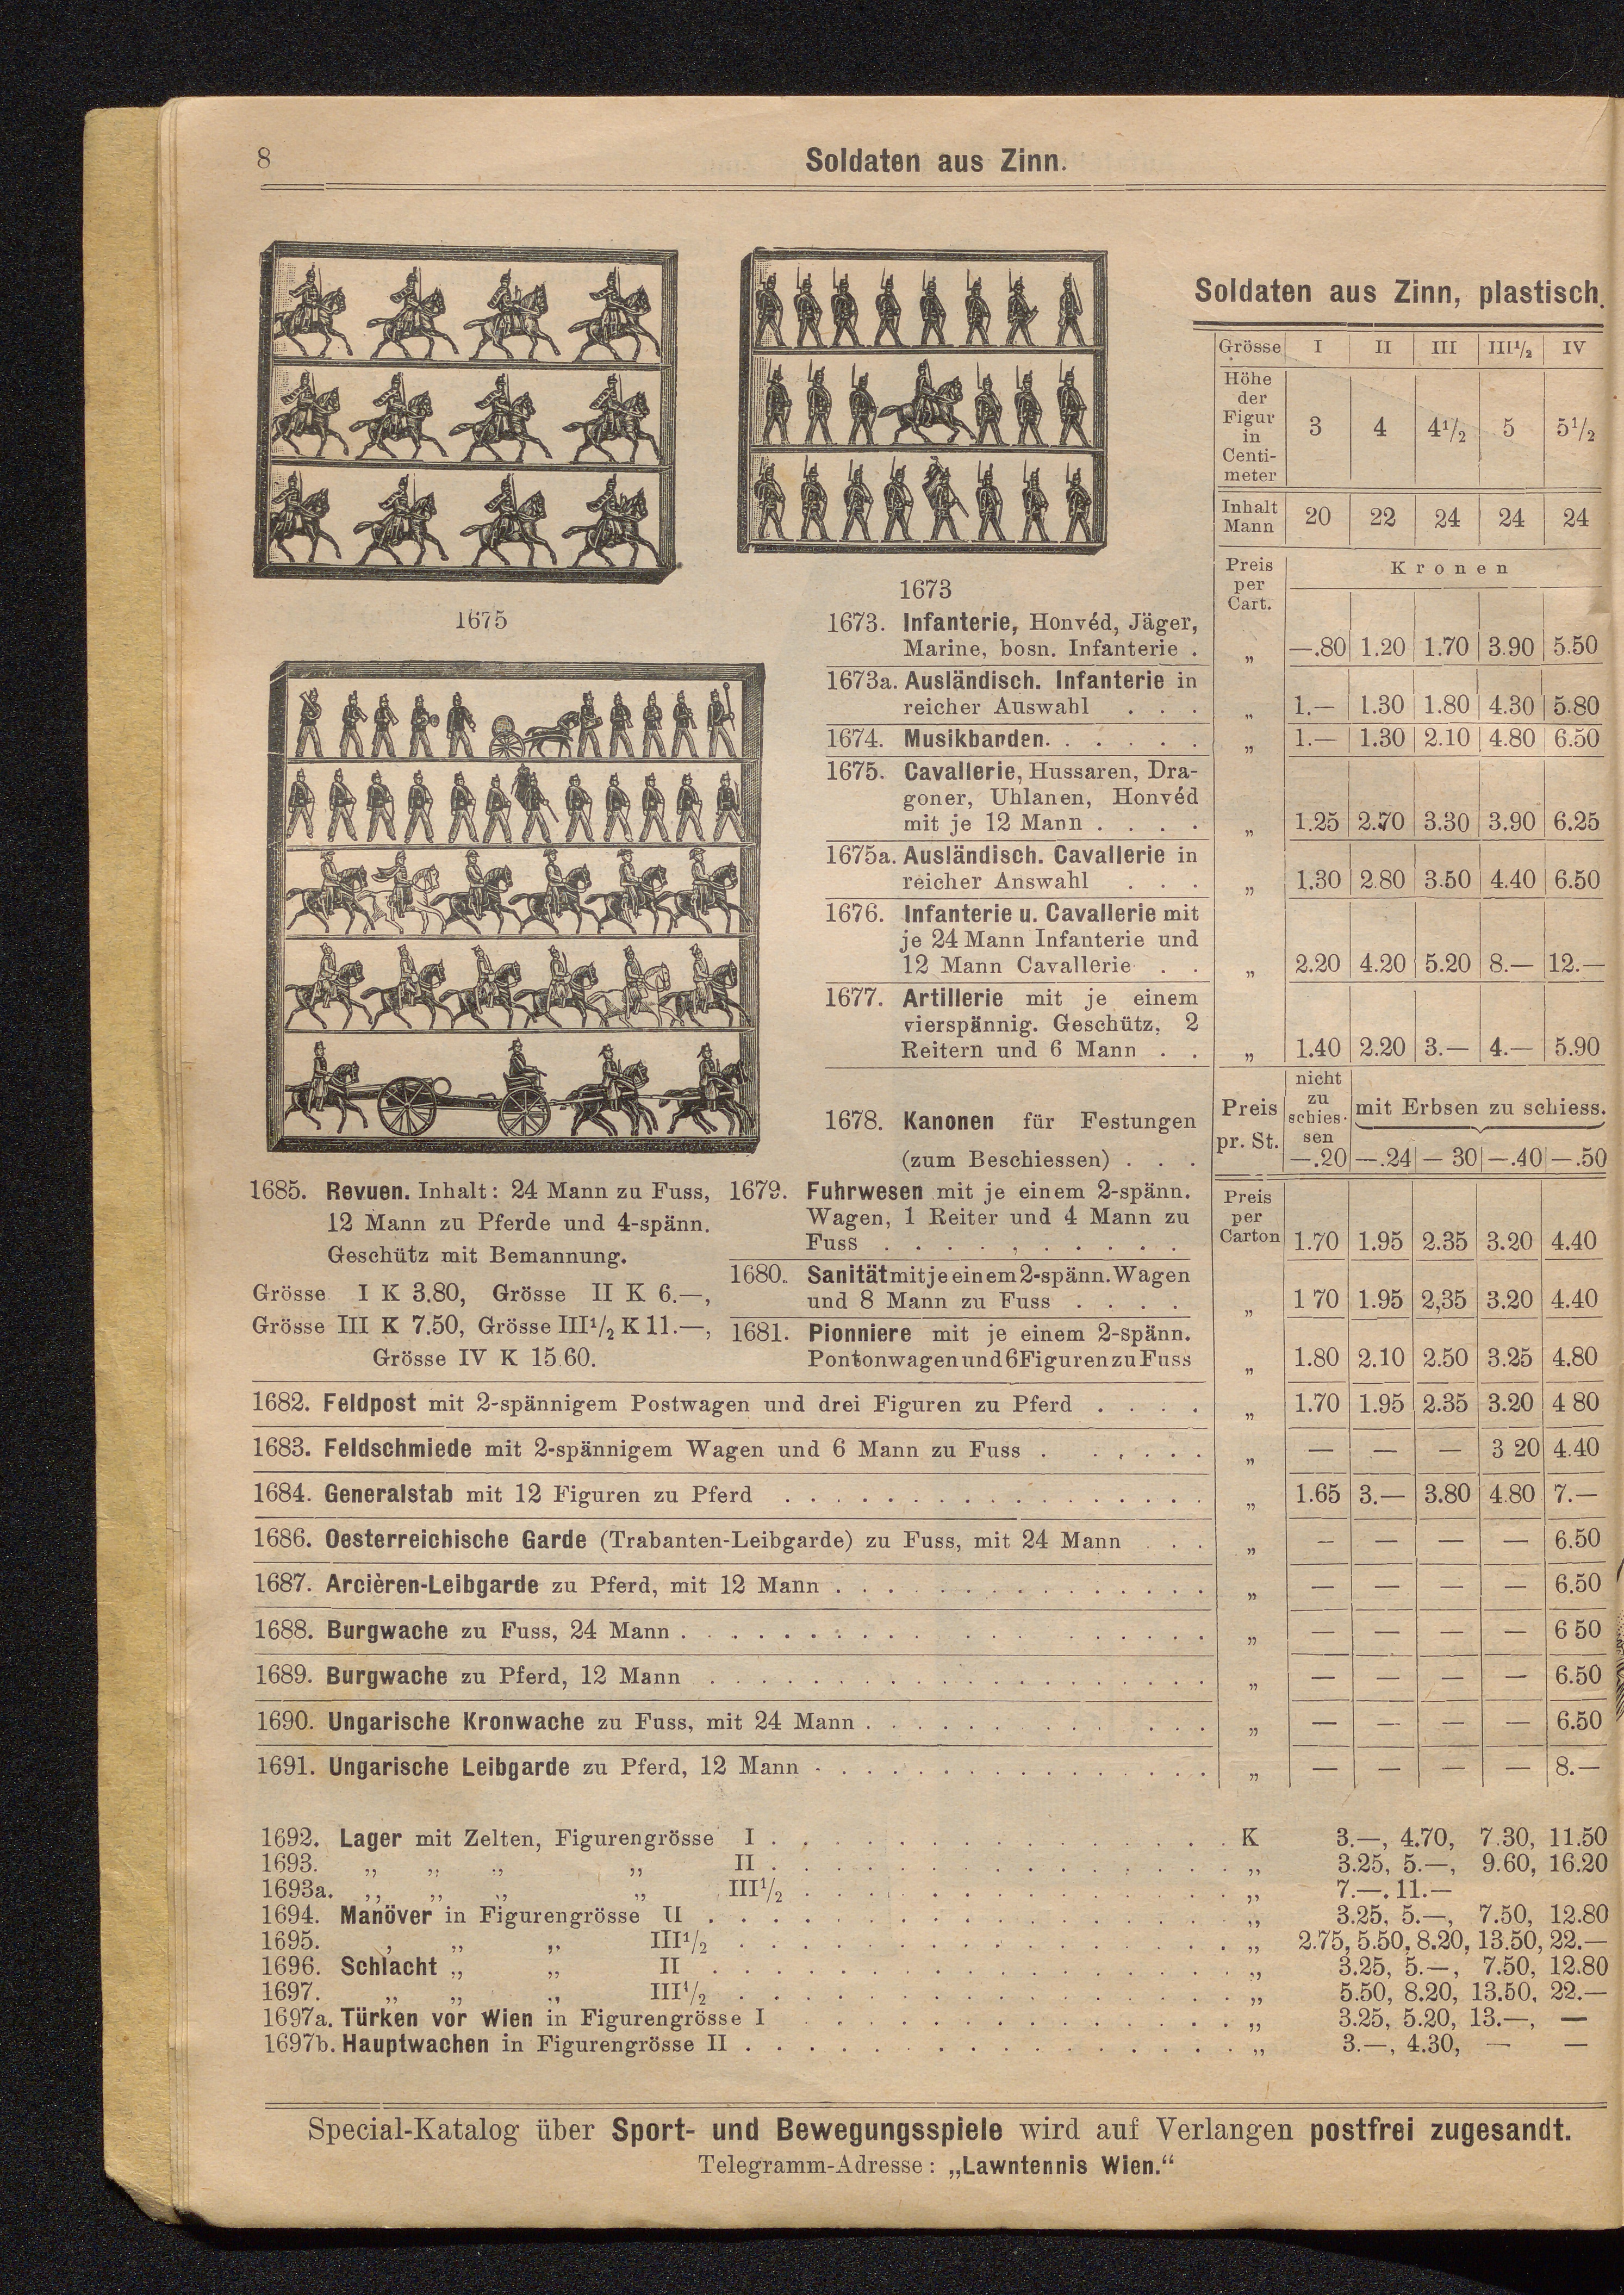 8
Soldaten aus Zinn.
1675
1673
Soldaten aus Zinn, plastisch.
Grösse I II III III¹/₂ IV
Höhe
der
Figur
in
Centi-
meter
3 4 4¹/₂ 5 5¹/₂
Inhalt
Mann
20 22 24 24 24
Preis
per
Cart.
Kronen
1673. Infanterie, Honvéd, Jäger,
Marine, bosn. Infanterie . „ —.80 1.20 1.70 3.90 5.50
1673a. Ausländisch. Infanterie in
reicher Auswahl . . . „ 1.— 1.30 1.80 4.30 5.80
1674. Musikbanden. . . . . . „ 1.— 1.30 2.10 4.80 6.50
1675. Cavallerie, Hussaren, Dra-
goner, Uhlanen, Honvéd
mit je 12 Mann . . . . „ 1.25 2.70 3.30 3.90 6.25
1675a. Ausländisch. Cavallerie in
reicher Answahl . . . „ 1.30 2.80 3.50 4.40 6.50
1676. Infanterie u. Cavallerie mit
je 24 Mann Infanterie und
12 Mann Cavallerie . . „ 2.20 4.20 5.20 8.— 12.—
1677. Artillerie mit je einem
vierspännig. Geschütz, 2
Reitern und 6 Mann . . „ 1.40 2.20 3.— 4.— 5.90
1678. Kanonen für Festungen
(zum Beschiessen) . . .
Preis
pr. St.
nicht
zu
schies-
sen
mit Erbsen zu schiess.
—.20 —.24 — 30 —.40 —.50
1685. Revuen. Inhalt: 24 Mann zu Fuss,
12 Mann zu Pferde und 4-spänn.
Geschütz mit Bemannung.
Grösse I K 3.80, Grösse II K 6.—,
Grösse III K 7.50, Grösse III¹/₂ K 11.—,
Grösse IV K 15.60.
1679. Fuhrwesen mit je einem 2-spänn.
Wagen, 1 Reiter und 4 Mann zu
Fuss . . . . . . . . . .
Preis
per
Carton
1.70 1.95 2.35 3.20 4.40
1680. Sanität mit je einem 2-spänn. Wagen
und 8 Mann zu Fuss . . . . „ 1 70 1.95 2,35 3.20 4.40
1681. Pionniere mit je einem 2-spänn.
Pontonwagen und 6 Figuren zu Fuss „ 1.80 2.10 2.50 3.25 4.80
1682. Feldpost mit 2-spännigem Postwagen und drei Figuren zu Pferd . . . . „ 1.70 1.95 2.35 3.20 4 80
1683. Feldschmiede mit 2-spännigem Wagen und 6 Mann zu Fuss . . . . . . „ — — — 3 20 4.40
1684. Generalstab mit 12 Figuren zu Pferd . . . . . . . . . . . . . . . . . „ 1.65 3.— 3.80 4.80 7.—
1686. Oesterreichische Garde (Trabanten-Leibgarde) zu Fuss, mit 24 Mann . . . „ — — — — 6.50
1687. Arcièren-Leibgarde zu Pferd, mit 12 Mann . . . . . . . . . . . . . . . „ — — — — 6.50
1688. Burgwache zu Fuss, 24 Mann . . . . . . . . . . . . . . . . . . . . . „ — — — — 6 50
1689. Burgwache zu Pferd, 12 Mann . . . . . . . . . . . . . . . . . . . . „ — — — — 6.50
1690. Ungarische Kronwache zu Fuss, mit 24 Mann . . . . . . . . . . . . . . „ — — — — 6.50
1691. Ungarische Leibgarde zu Pferd, 12 Mann . . . . . . . . . . . . . . . . „ — — — — 8.—
1692. Lager mit Zelten, Figurengrösse I . . . . . . . . . . . . . . . K 3.—, 4.70, 7.30, 11.50
1693. „ „ „ „ II . . . . . . . . . . . . . . . „ 3.25, 5.—, 9.60, 16.20
1693a. „ „ „ „ III¹/₂ . . . . . . . . . . . . . . „ 7.—. 11.—
1694. Manöver in Figurengrösse II . . . . . . . . . . . . . . . . . „ 3.25, 5.—, 7.50, 12.80
1695. , „ „ III¹/₂ . . . . . . . . . . . . . . . . „ 2.75, 5.50, 8.20, 13.50, 22.—
1696. Schlacht „ „ II . . . . . . . . . . . . . . . . . „ 3.25, 5.—, 7.50, 12.80
1697. „ „ „ III¹/₂ . . . . . . . . . . . . . . . . „ 5.50, 8.20, 13.50, 22.—
1697a. Türken vor Wien in Figurengrösse I . . . . . . . . . . . . . . „ 3.25, 5.20, 13.—, —
1697b. Hauptwachen in Figurengrösse II . . . . . . . . . . . . . . . . „ 3.—, 4.30, — —
Special-Katalog über Sport- und Bewegungsspiele wird auf Verlangen postfrei zugesandt.
Telegramm-Adresse: „Lawntennis Wien.“